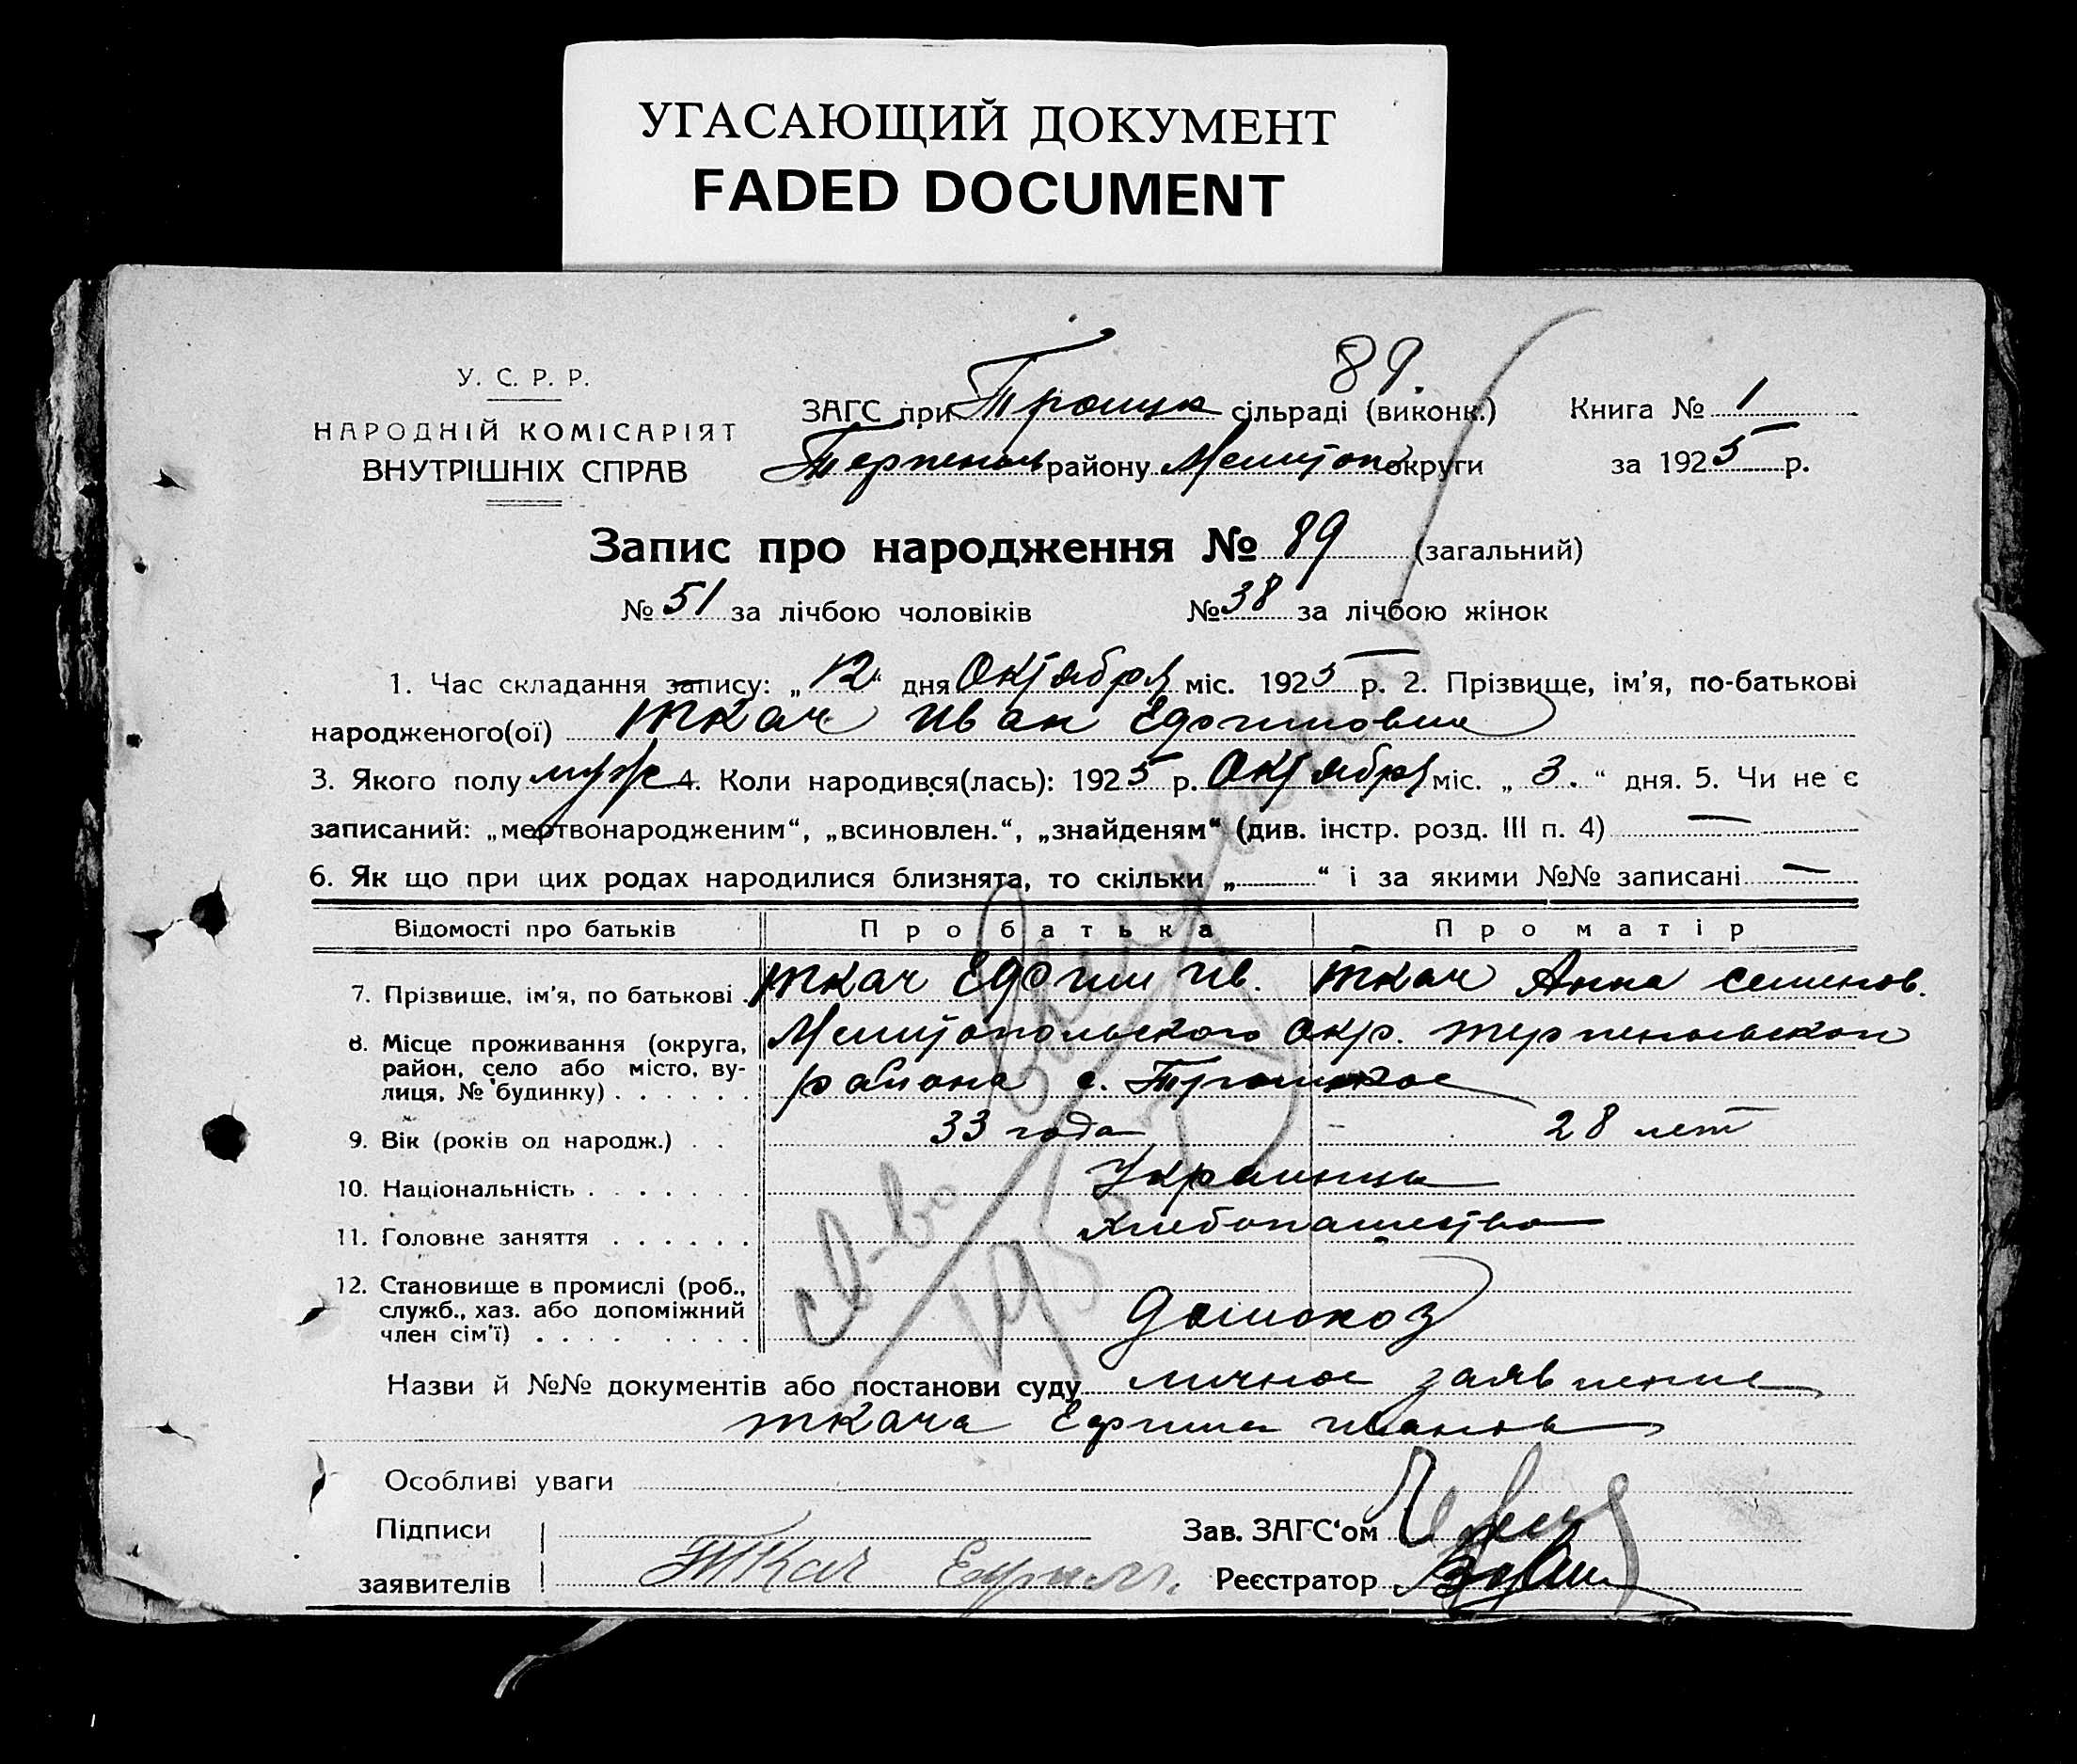 УГАСАЮЩИЙ ДОКУМЕНТ
FADED DOCUMENT
89.
У. С. Р. Р.
НАРОДНІЙ КОМІСАРІЯТ
ВНУТРІШНІХ СПРАВ
ЗАГС при Троицк сільраді (виконк.) Книга № 1
Терпеньев району Мелитоп округи за 1925 р.
Запис про народження № 89 (загальний)
№ 51 за лічбою чоловіків № 38 за лічбою жінок
1. Час складання запису: „12“ дня Октября міс. 1925 р. 2. Прізвище, ім'я, по-батькові
народженого(ої) Ткач Иван Ефимович
3. Якого полу муж 4. Коли народився(лась): 1925 р. Октября міс. „3.“ дня. 5. Чи не є
записаний: „мертвонародженим“, „всиновлен.“, „знайденям“ (див. інстр. розд. III п. 4) —
6. Як що при цих родах народилися близнята, то скільки „—“ і за якими №№ записані —
Відомості про батьків Про батька Про матір
7. Прізвище, ім'я, по батькові Ткач Ефим Ив. Ткач Анна Семенов.
8. Місце проживання (округа, Мелитопольского Окр. Терпеньевского
район, село або місто, ву- района с. Троицкое
лиця, № будинку)
9. Вік (років од народж.) 33 года 28 лет
10. Національність Украинцы
11. Головне заняття хлебопашество
12. Становище в промислі (роб.,
служб., хаз. або допоміжний домохоз
член сім'ї)
Назви й №№ документів або постанови суду личное заявление
Ткача Ефима Иванов
Особливі уваги
Підписи Зав. ЗАГС'ом
заявителів Ткач Ефим. Реєстратор